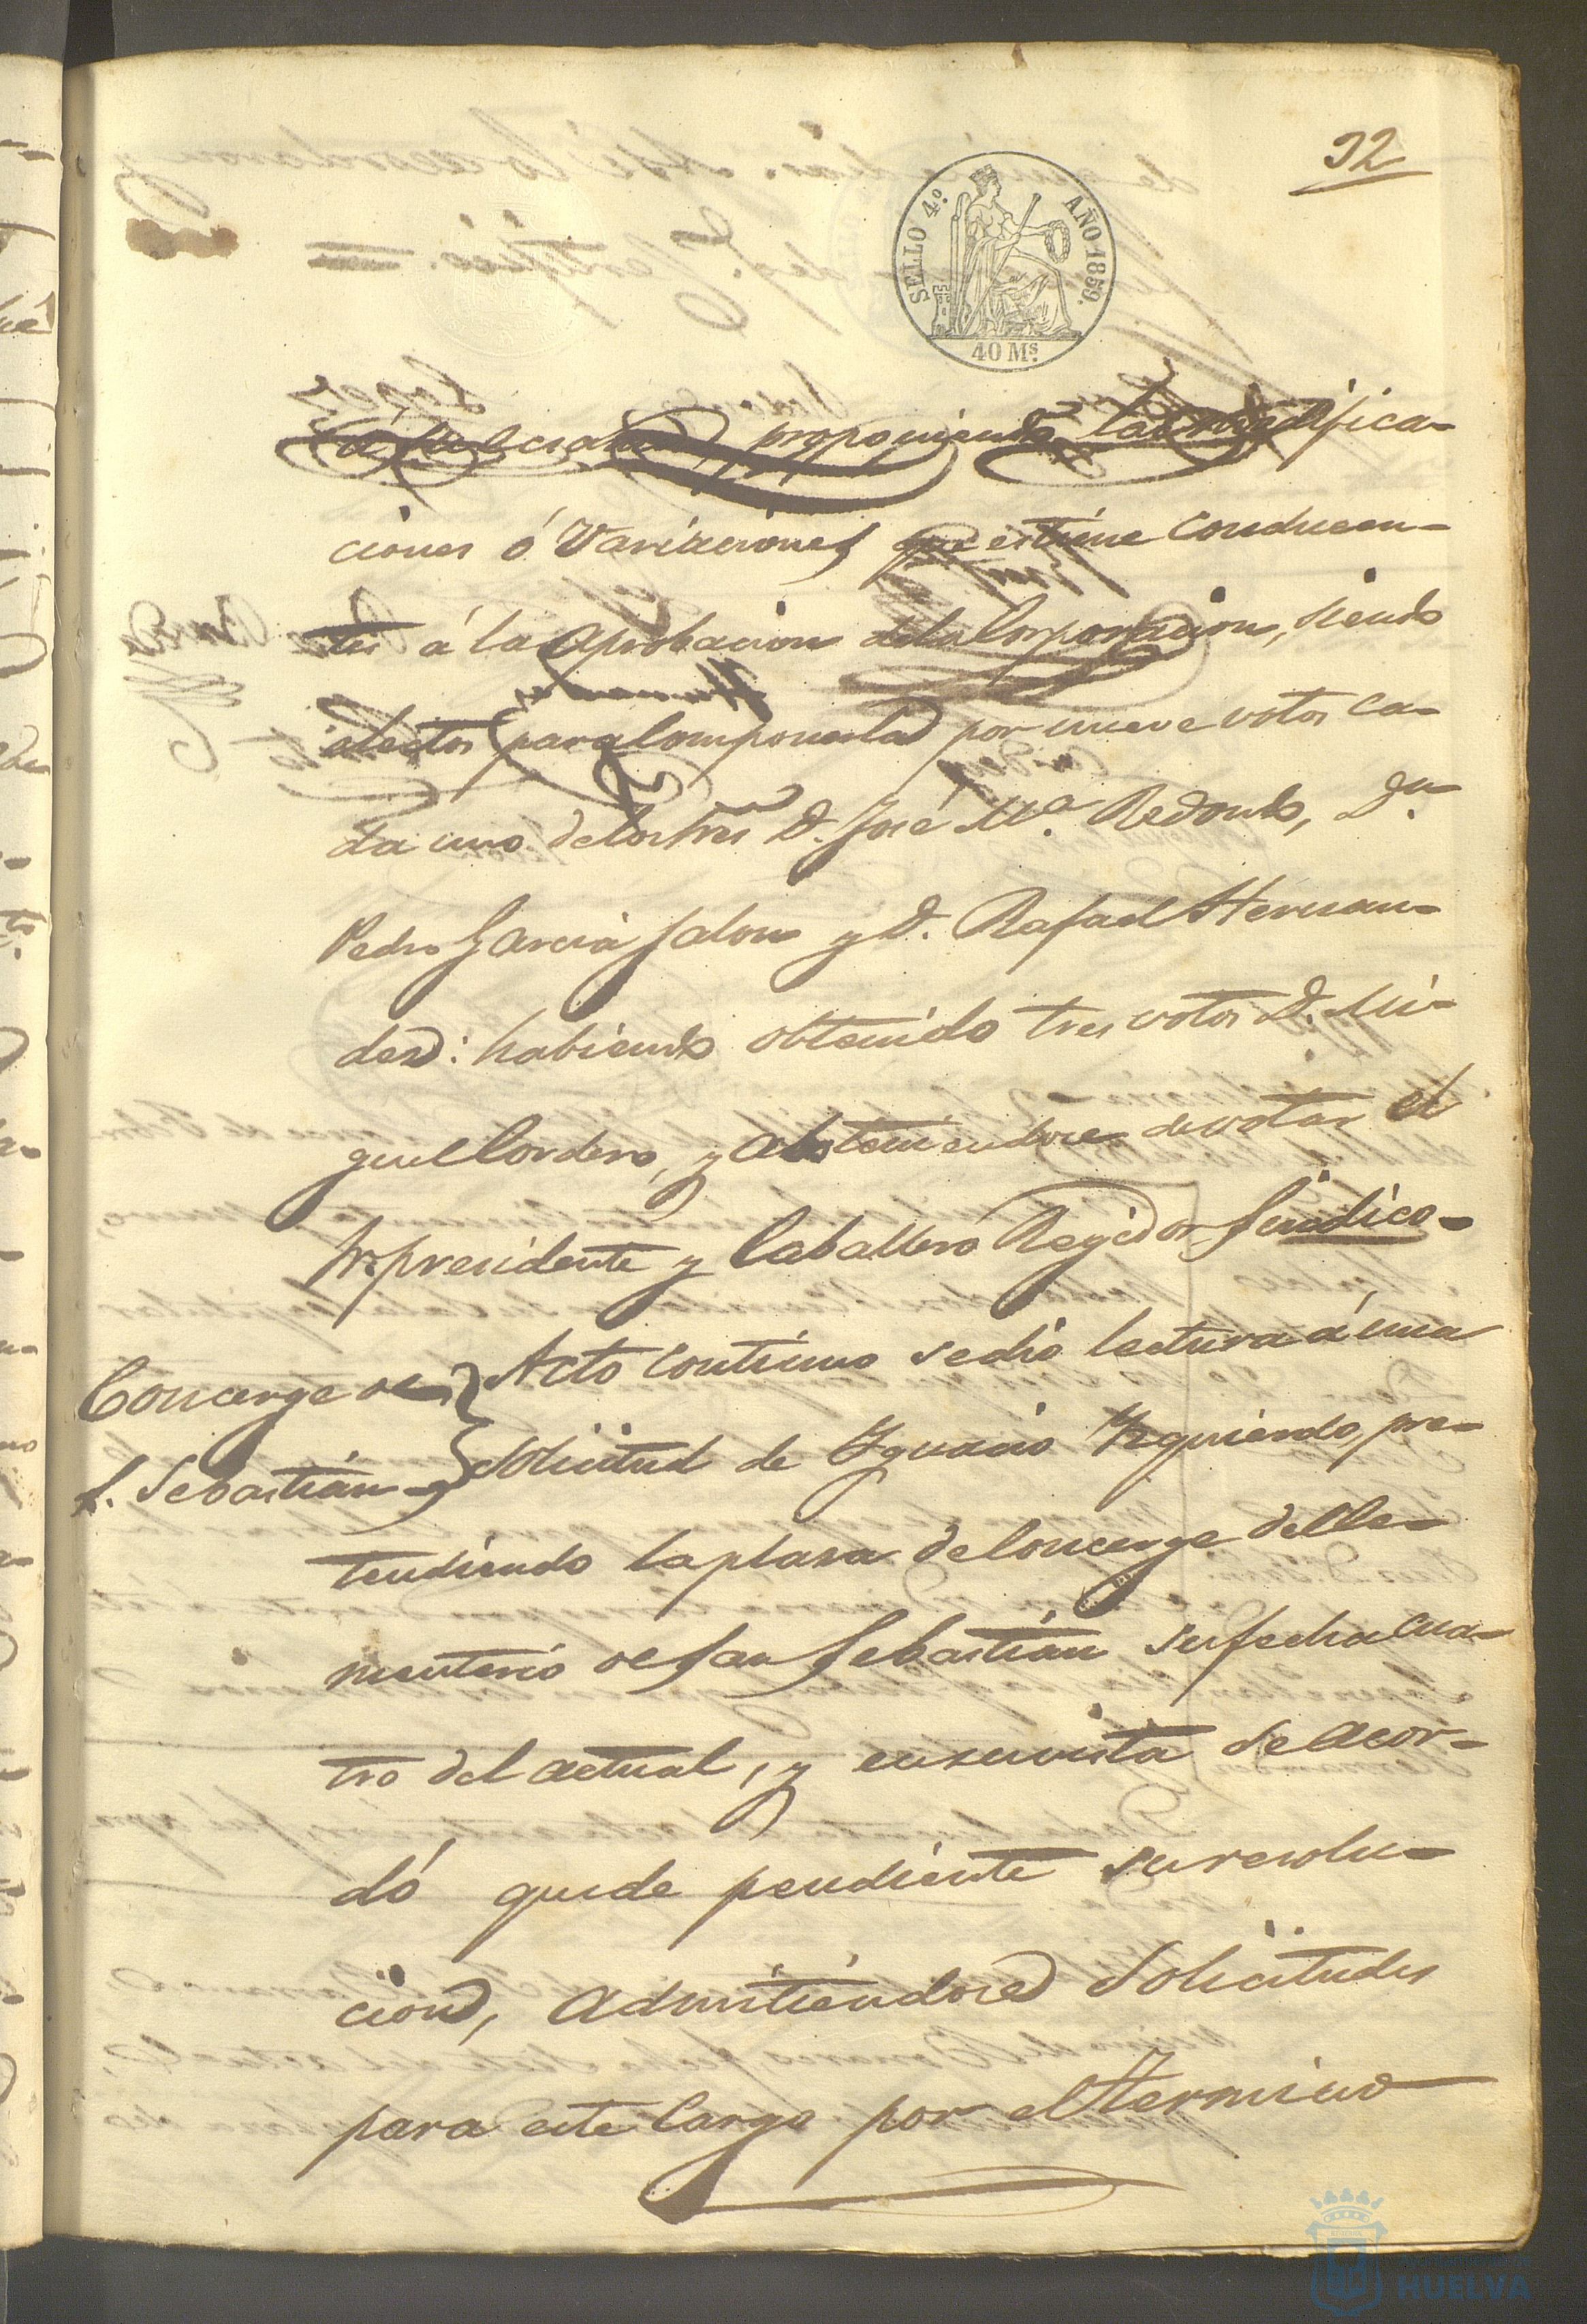 32
SELLO 4º AÑO 1859.
40 Ms.
proponiendo las modifica-
ciones ó Variaciones que estime conducen-
tes á la aprobacion dela Corporacion, siendo
electos para Componerla por nueve votos ca-
da uno delos tres D. José Mª Redondo, Dn.
Pedro Garcia Jalon y D. Rafael Hernan-
dez: habiendo obtenido tres votos D. Mi-
guel Cordero, y absteniendose de votar el
Sr. presidente y Caballero Regidor Sindico-
Concerge de
S. Sebastián
Acto contínuo se dió lectura á una
Solicitud de Ygnacio Yzquierdo, pre-
tendiendo la plaza de Concerge del Ce-
menterio de San Sebastián su fecha cua-
tro del actual, y en su vista se acor-
dó quede pendiente su resolu-
cion, admitiéndose Solicitudes
para este Cargo por el termino
HUELVA